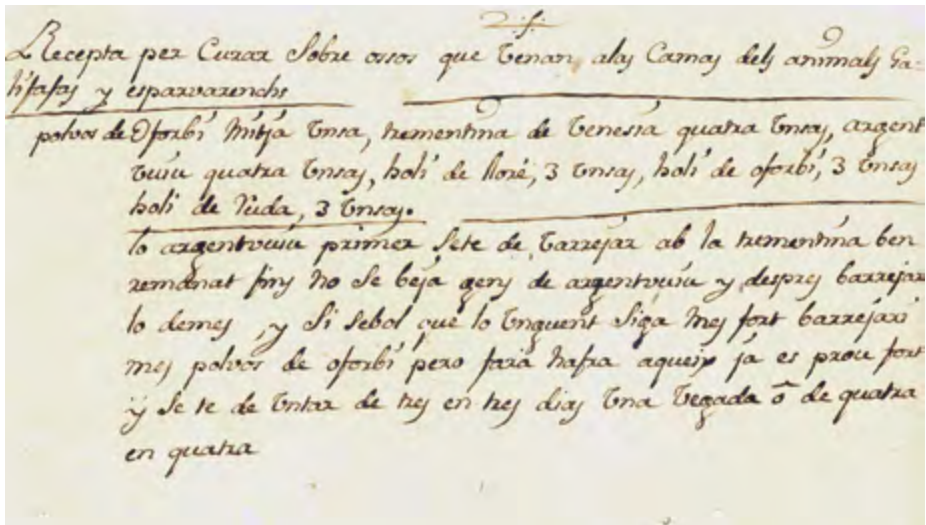 2.f.
Recepta per Curar Sobre ossos que Tenan, alas Camas dels animals Ga=
lifafas y esparvarenchs
polvos de Oforbi Mitja Unsa, trementina de Venesia quatra Unsas, argent
viu quatra Unsas, holi de lloré, 3 Unsas, holi de oforbi, 3 Unsas
holi de Ruda, 3 Unsas.
lo argentviu primer Sete de barrejar ab la trementina ben
remanat fins No Se beja gens de argentviu y despres barrejar
lo demes, y Si Sebol que lo Unguent Siga Mes fort barrejari
mes polvos de oforbi pero fara Nafra aqueix ja es prou fort
y Se te de Untar de tres en tres dias Una Vegada ó de quatra
en quatra